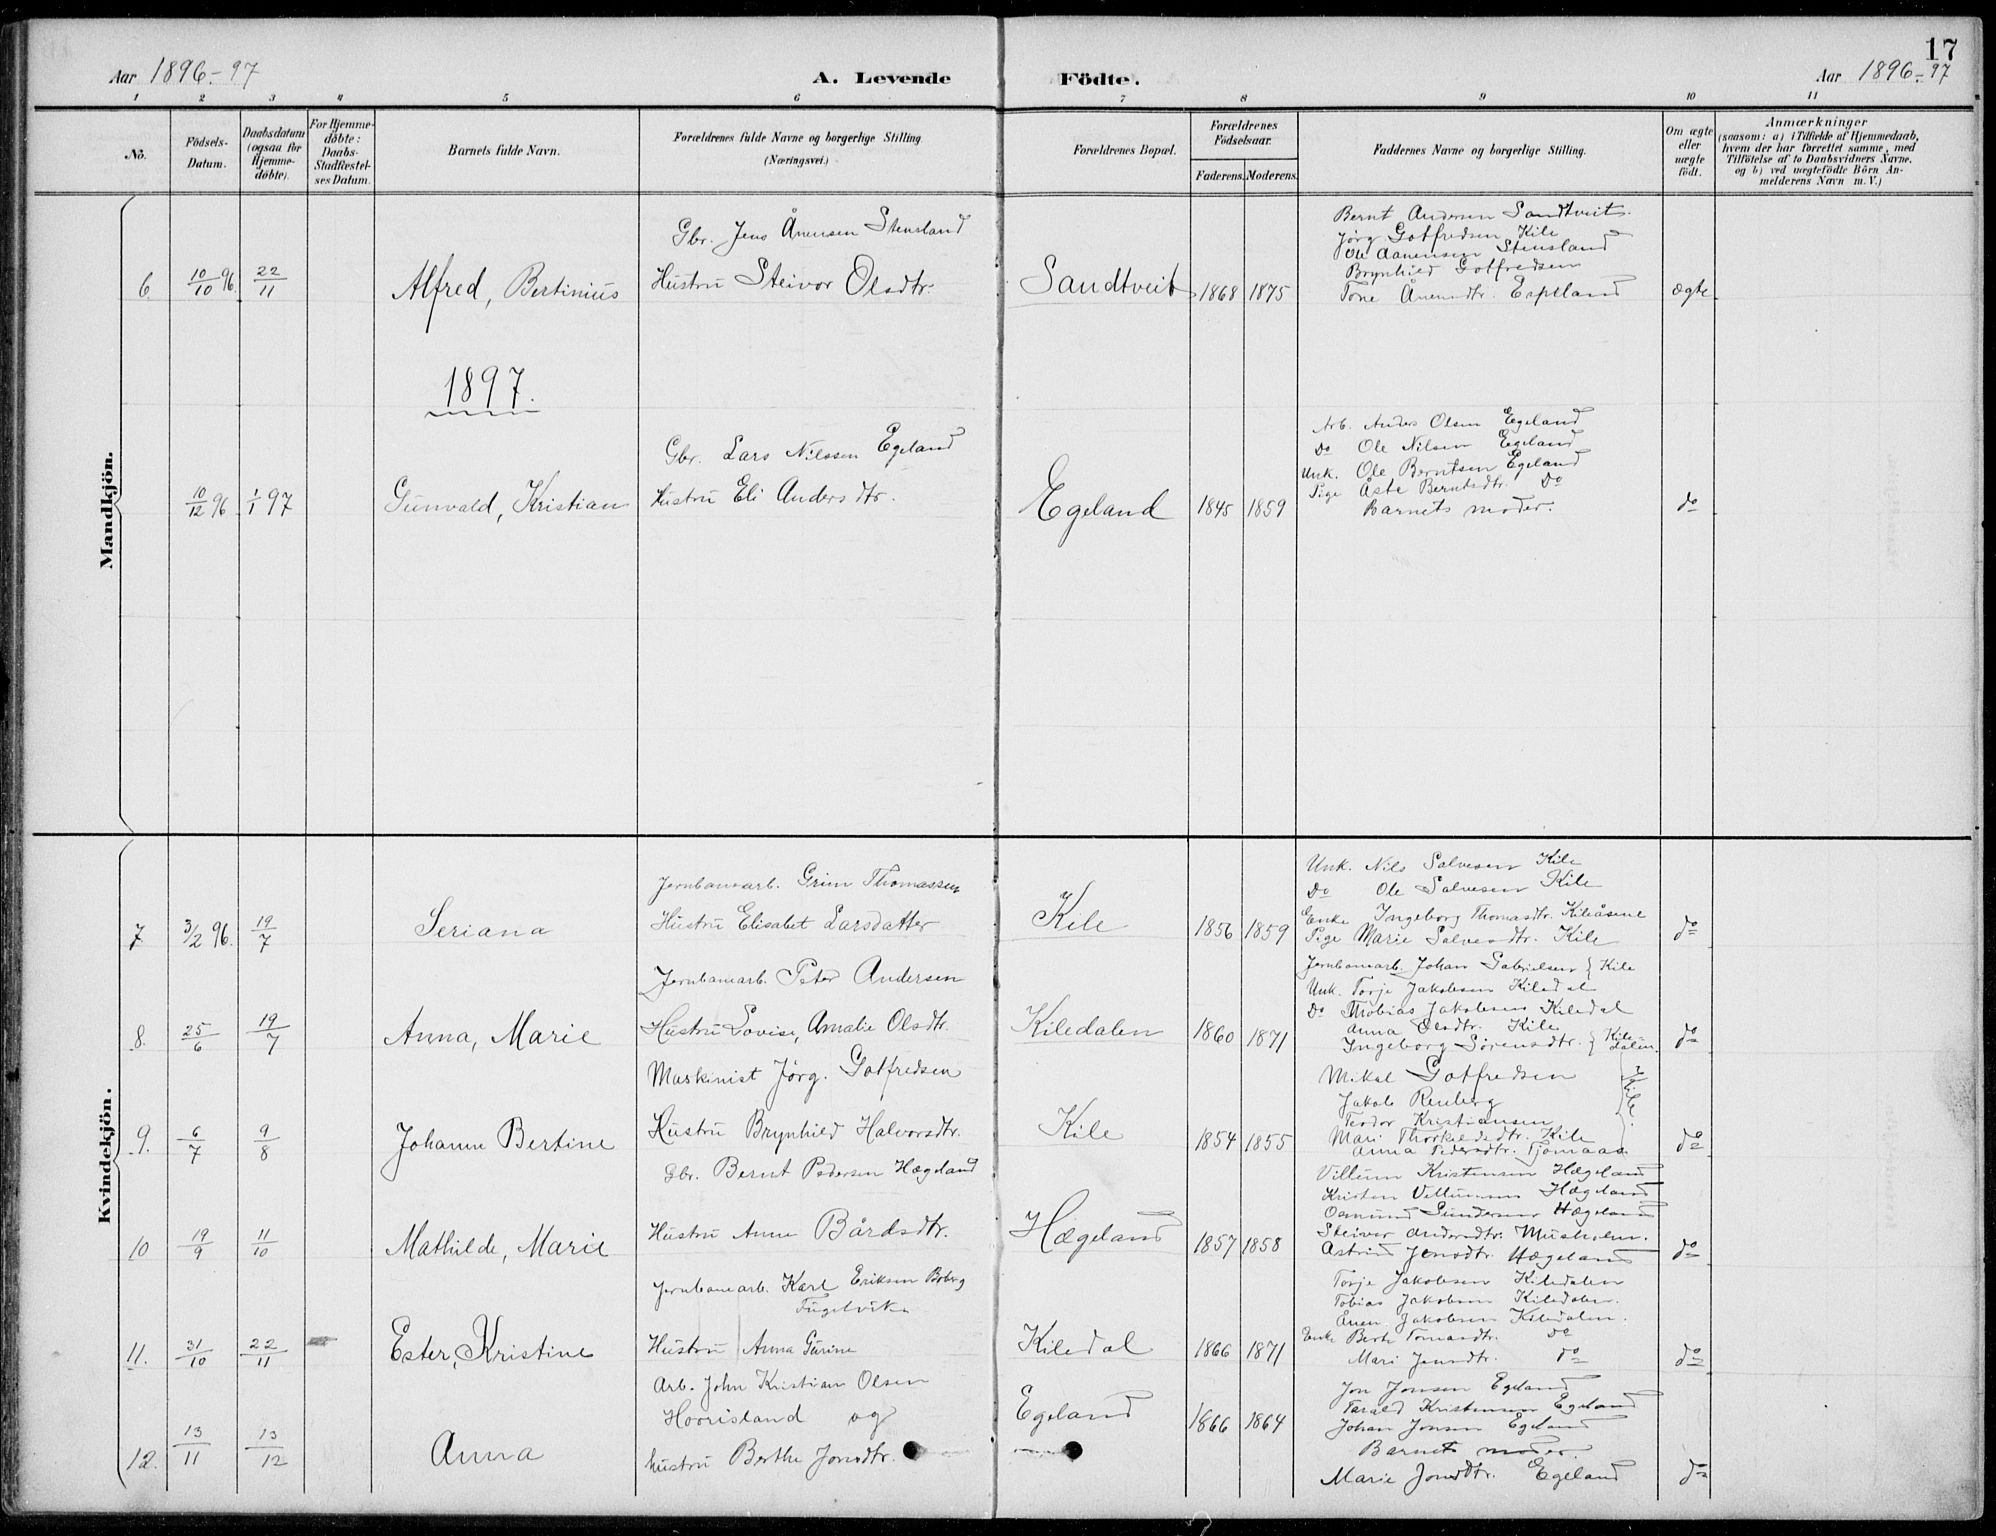 17
Aar 1896-97
A. Levende
Födte.
Aar 1896-97
1 2 3 4 5 6 7 8 9 10 11
No.
Födsels-Datum.
Daabsdatum (ogsaa for Hjemme-døbte).
For Hjemme-døbte: Daabs-Stadfæstel-ses Datum.
Barnets fulde Navn.
Forældrenes fulde Navne og borgerlige Stilling (Næringsvei.)
Forældrenes Bopæl.
Forældrenes Födselsaar.
Faderens. Moderens.
Faddernes Navne og borgerlige Stilling.
Om ægte eller uægte födt.
Anmærkninger
(saasom: a) i Tilfælde af Hjemmedaab,
hvem der har forrettet samme, med
Tilföielse af to Daabsvidners Navne.
og b) ved uægtefödte Börn An-
melderens Navn m. V.)
Mandkjön.
6 10/10 96. 22/11
Alfred, Bertinius
Gbr. Jens Ånensen Stensland
Hustru Steivor Olsdtr.
Sandtveit
1868 1875
Bernt Andersen Sandtveit.
Jørg. Gotfredsen Kile
Ole Aanensen Stensland
Brynhild Gotfredsen
Tone Ånensdtr. Espeland
ægte
1897.
10/12 96 1/1 97
Gunvald, Kristian
Gbr. Lars Nilssen Egeland
Hustru Eli Andersdtr.
Egeland
1845 1859
Arb. Anders Olsen Egeland
Do Ole Nilsen Egeland
Unk. Ole Berntsen Egeland
Pige Åste Berntsdtr. Do
Barnets moder.
do
Kvindekjön.
7 3/2 96. 19/7
Seriana
Jernbanearb. Grim Thomassen
Hustru Elisabet Larsdatter
Kile
1856 1859
Unk. Nils Salvesen Kile
Do Ole Salvesen Kile
Enke Ingeborg Thomasdtr. Kileåsene
Pige Marie Salvesdtr. Kile
do
8. 25/6 19/7
Anna, Marie
Jernbanearb. Peter Andersen
Hustru Lovise, Amalie Olsdtr.
Kiledalen
1860 1871
Jernbanearb. Johan Gabrielsen } Kile
Unk. Torje Jakobsen Kiledal
Do Thobias Jakobsen Kiledal
Anna Olsdtr. Kile
Ingeborg Sørensdtr. } Kiledalen.
do
9. 6/7 9/8
Johanne Bertine
Maskinist Jörg. Gotfredsen
Hustru Brynhild Halvorsdtr.
Kile
1854 1855
Mikal Gotfredsen
Jakob Renberg
Teodor Kristiansen
} Kile.
Mari Thorkildsdtr. Kile
Anna Pedersdtr. Tjomaas
do
10 19/9 11/10
Mathilde, Marie
Gbr. Bernt Pedersen Hægeland
Hustru Anne Bårdsdtr.
Hægeland
1857 1858
Villum Kristensen Hægeland
Kristen Villumsen Hægeland
Osmund Gundersen Hægeland
Steivor Andersdtr. Musholm.
Astrid Jensdtr. Hægeland
do
11. 31/10 22/11
Ester, Kristine
Jernbanearb. Karl Eriksen Boberg
Fugelvik
Hustru Anna Gurine
Kiledal
1866 1871
Torje Jakobsen Kiledalen
Tobias Jakobsen Kiledalen.
Ånen Jakobsen Kiledalen.
Enke Berte Tomasdtr. Do
Mari Jensdtr. Do
do
12. 13/11 13/12
Anna
Arb. John Kristian Olsen
Hoorisland og
hustru Berthe Jonsdtr.
Egeland
1866 1864
Jon Jonsen Egeland
Tarald Kristensen Egeland
Johan Jonsen Egeland
Barnets moder.
Marie Jonsdtr. Egeland
do